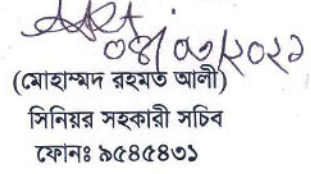 ০৪/০৩/২০২১
(মোহাম্মদ রহমত আলী)
সিনিয়র সহকারী সচিব
ফোনঃ ৯৫৪৫৪৩১